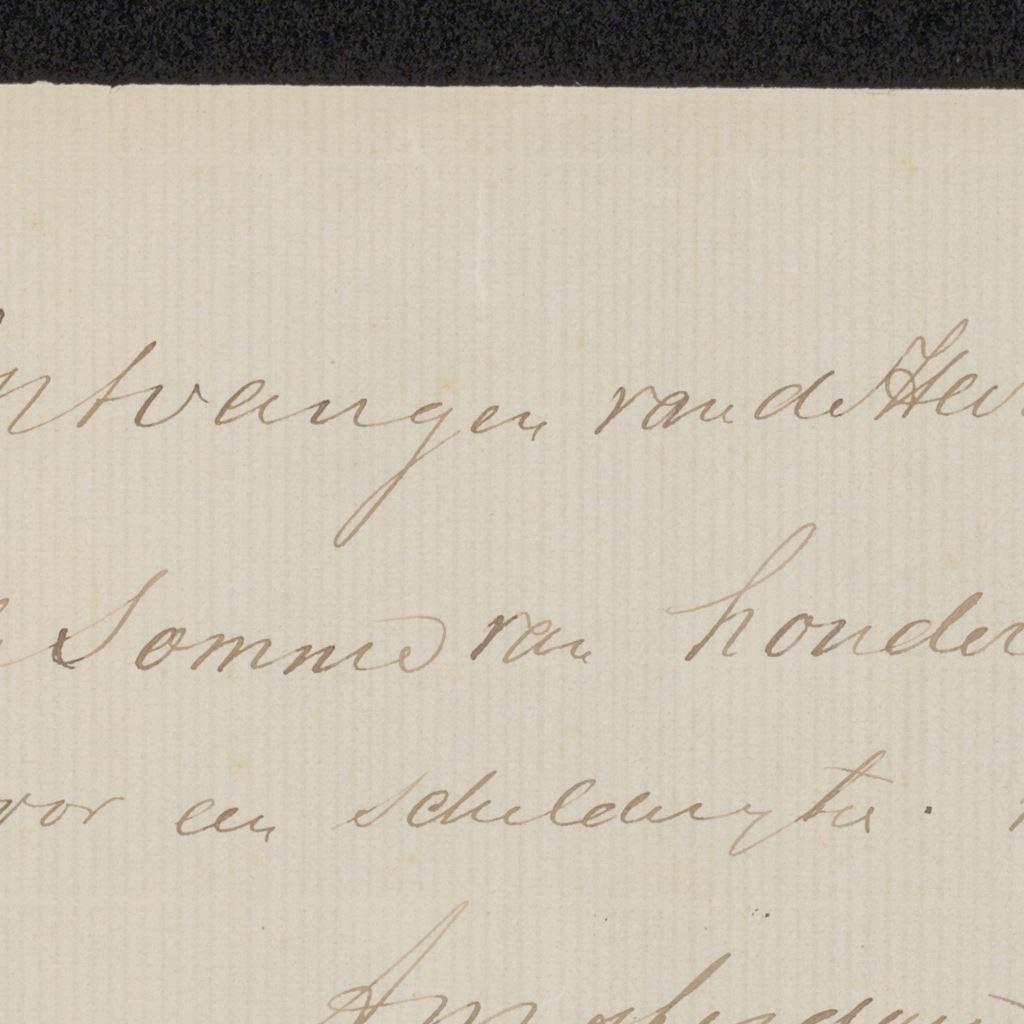 ntvangen van de Hee
Somme van honder
voor een schilderytje.
Amsterdam